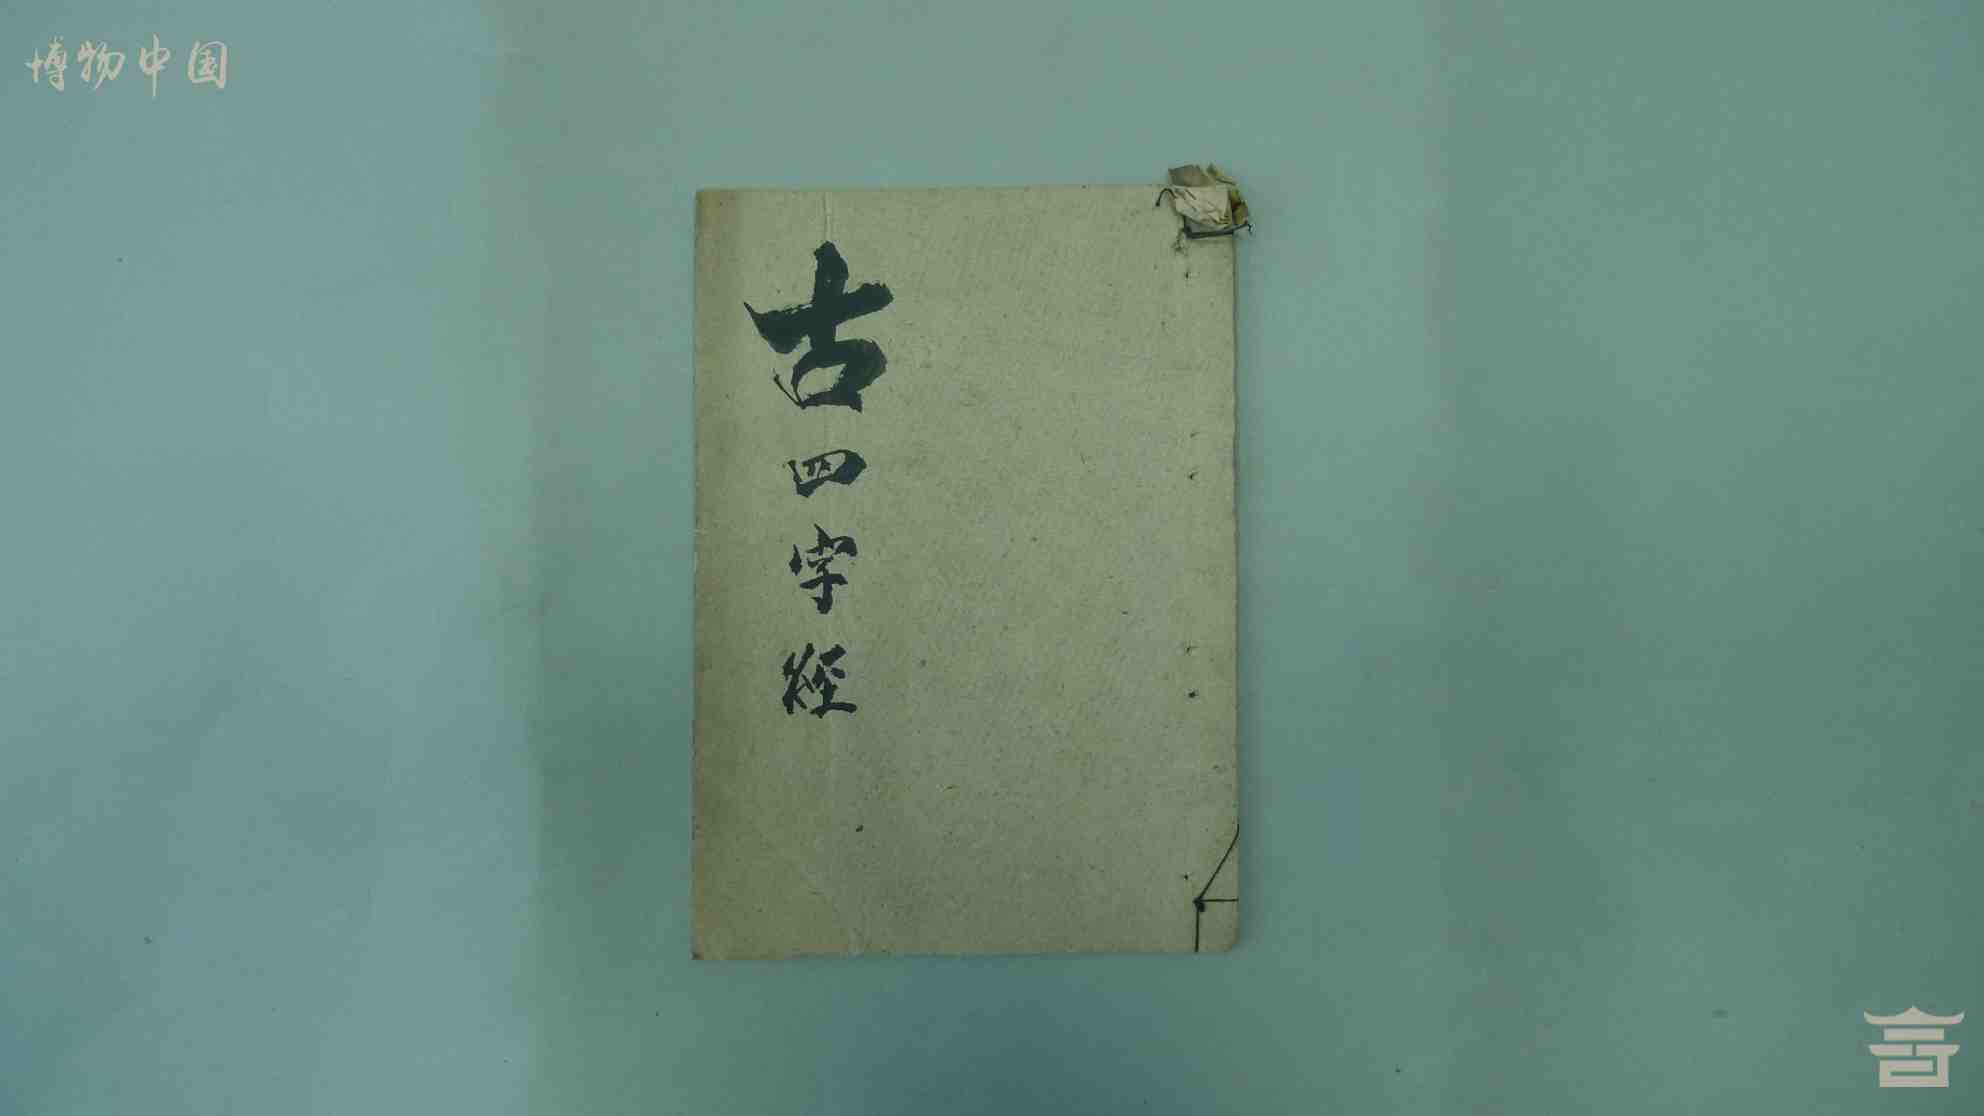 博物中国
古四字經